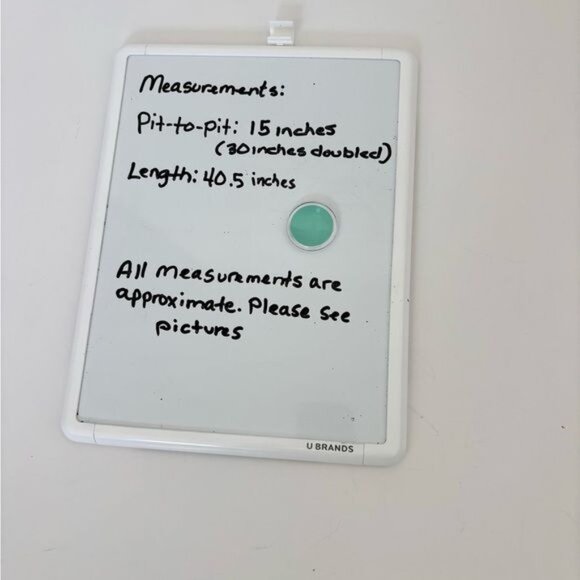 Measurements:
Pit-to-pit: 15 inches
(30 inches doubled)
Length: 40.5 inches
All measurements are
approximate. Please see
pictures
U BRANDS